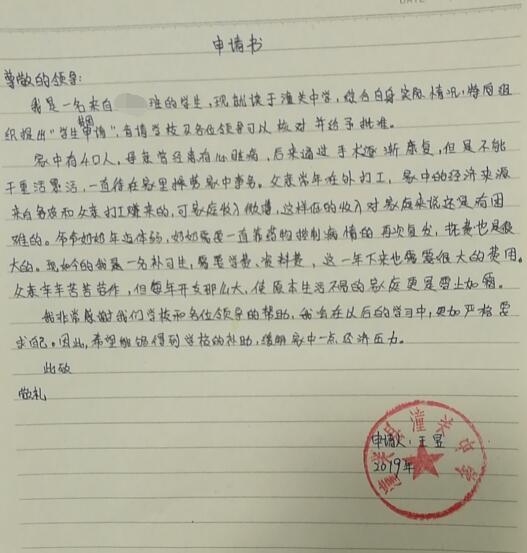 申请书
尊敬的领导:
我是一名来自 班的学生,现就读于潼关中学,结合自身实际情况,特向组
织提出"学生资助申请",恳请学校及各位领导可以核对并给予批准。
家中有4口人,母亲曾经患有心脏病,后来通过手术逐渐康复,但是不能
干重活累活,一直待在家里操劳家中事务。父亲常年在外打工,家中的经济来源
来自务农和父亲打工赚来的,可家庭收入微薄,这样低的收入对家庭来说还是有困
难的。爷爷奶奶年迈体弱,奶奶需要一直靠药物控制病情的再次复发,耗费也是极
大的。现如今的我是一名补习生,需要学费、资料费,这一年下来也需要很大的费用。
父亲辛辛苦苦劳作,但每年开支那么大,使原本生活不易的家庭更是雪上加霜。
我非常感谢我们学校和各位领导的帮助,我会在以后的学习中,更加严格要
求自己。因此,希望能够得到学校的补助,缓解家中一点经济压力。
此致
敬礼
申请人:王昱
2019年
潼关县潼关中学